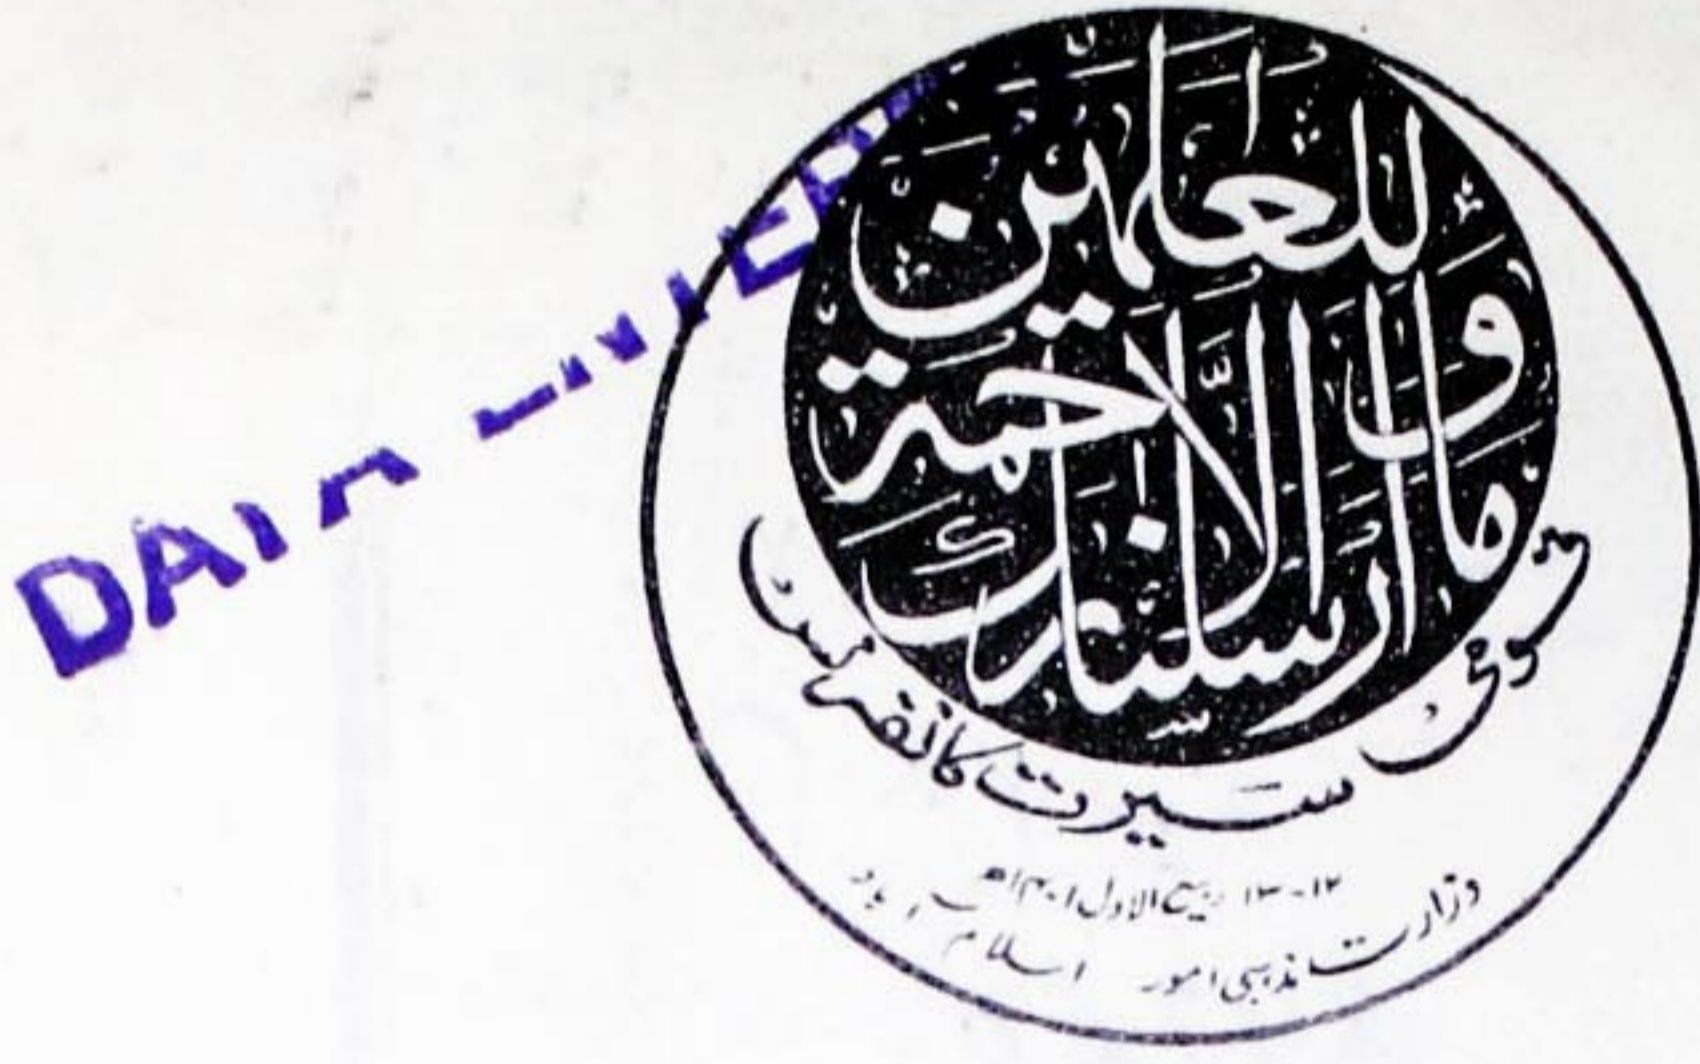 وَمَا أَرْسَلْنَاكَ إِلَّا رَحْمَةً لِلْعَالَمِينَ
قومی سیرت کانفرنس
۱۲-۱۳ ربیع الاول ۱۴۰۱ھ
وزارت مذہبی امور اسلام آباد